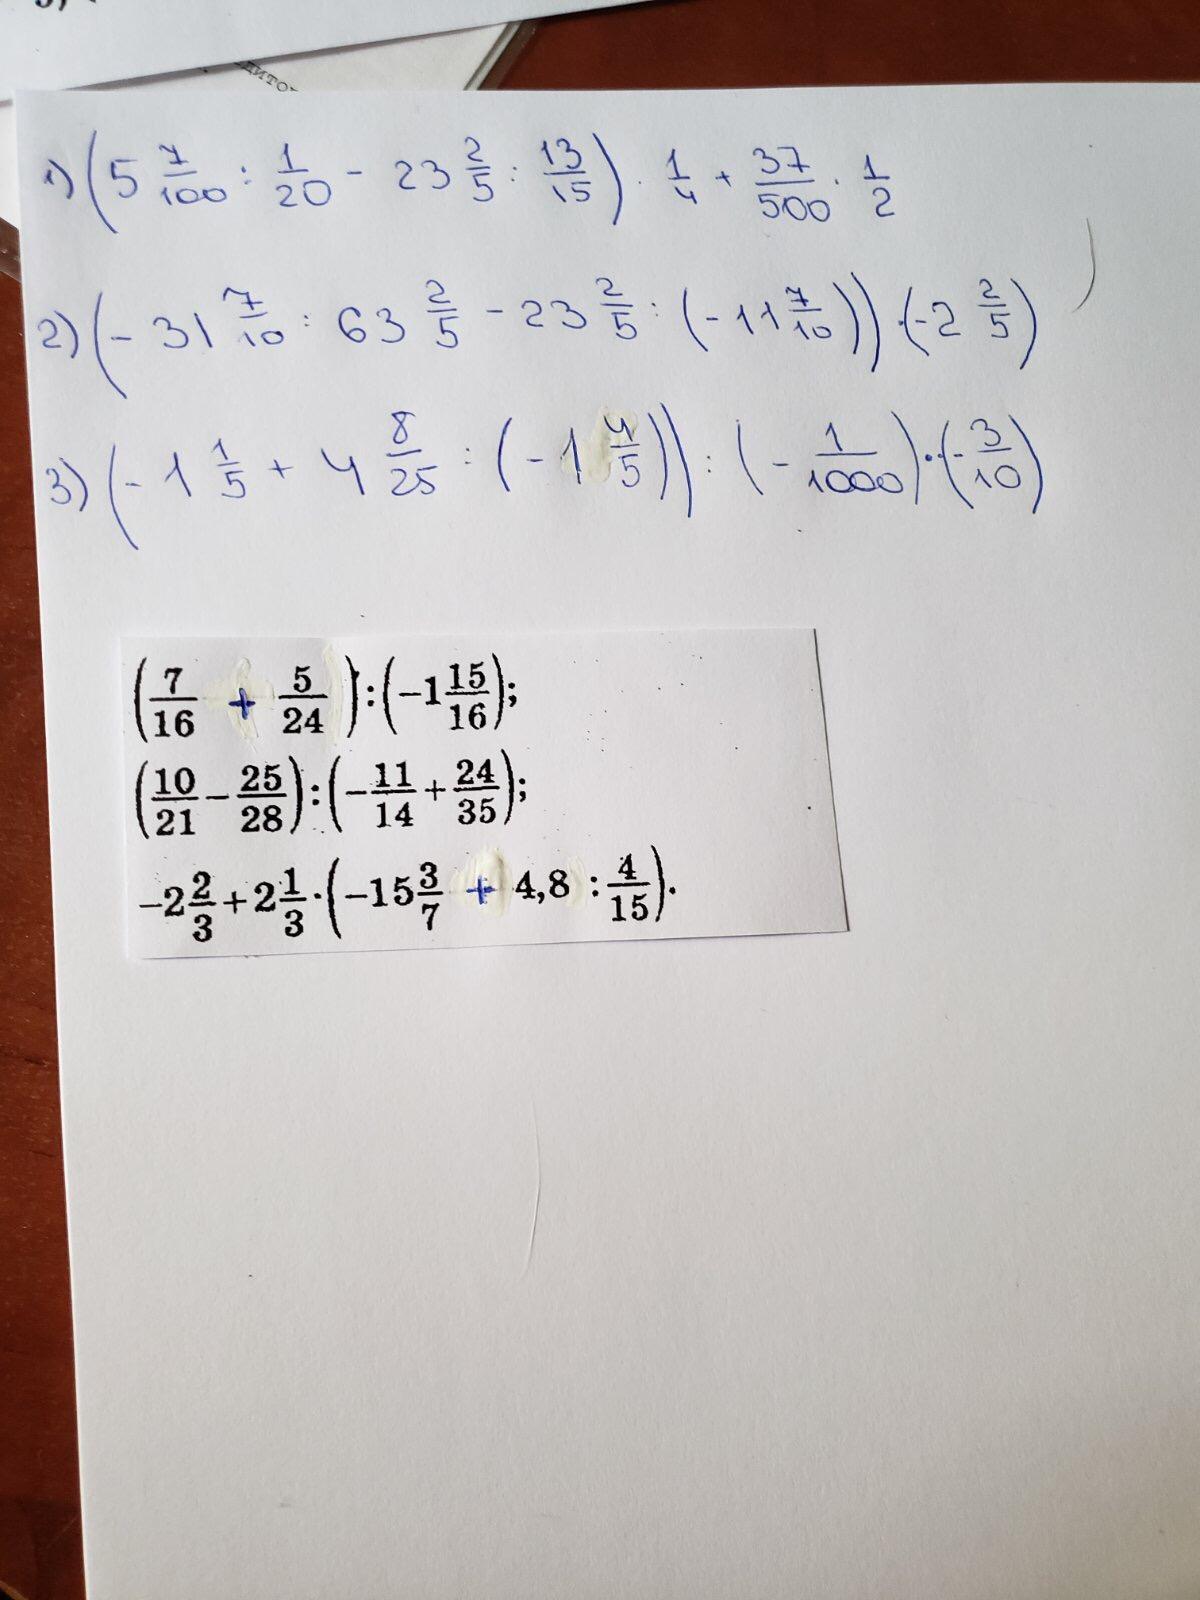 1) (5 7/100 : 1/20 - 23 2/5 : 13/15) · 1/4 + 37/500 · 1/2
2) (- 31 7/10 : 63 2/5 - 23 2/5 : (- 11 7/10)) · (-2 2/5)
3) (- 1 1/5 + 4 8/25 : (- 1 4/5)) : (- 1/1000) · (- 3/10)
(7/16 + 5/24) : (-1 15/16);
(10/21 - 25/28) : (-11/14 + 24/35);
-2 2/3 + 2 1/3 · (-15 3/7 + 4,8 : 4/15).